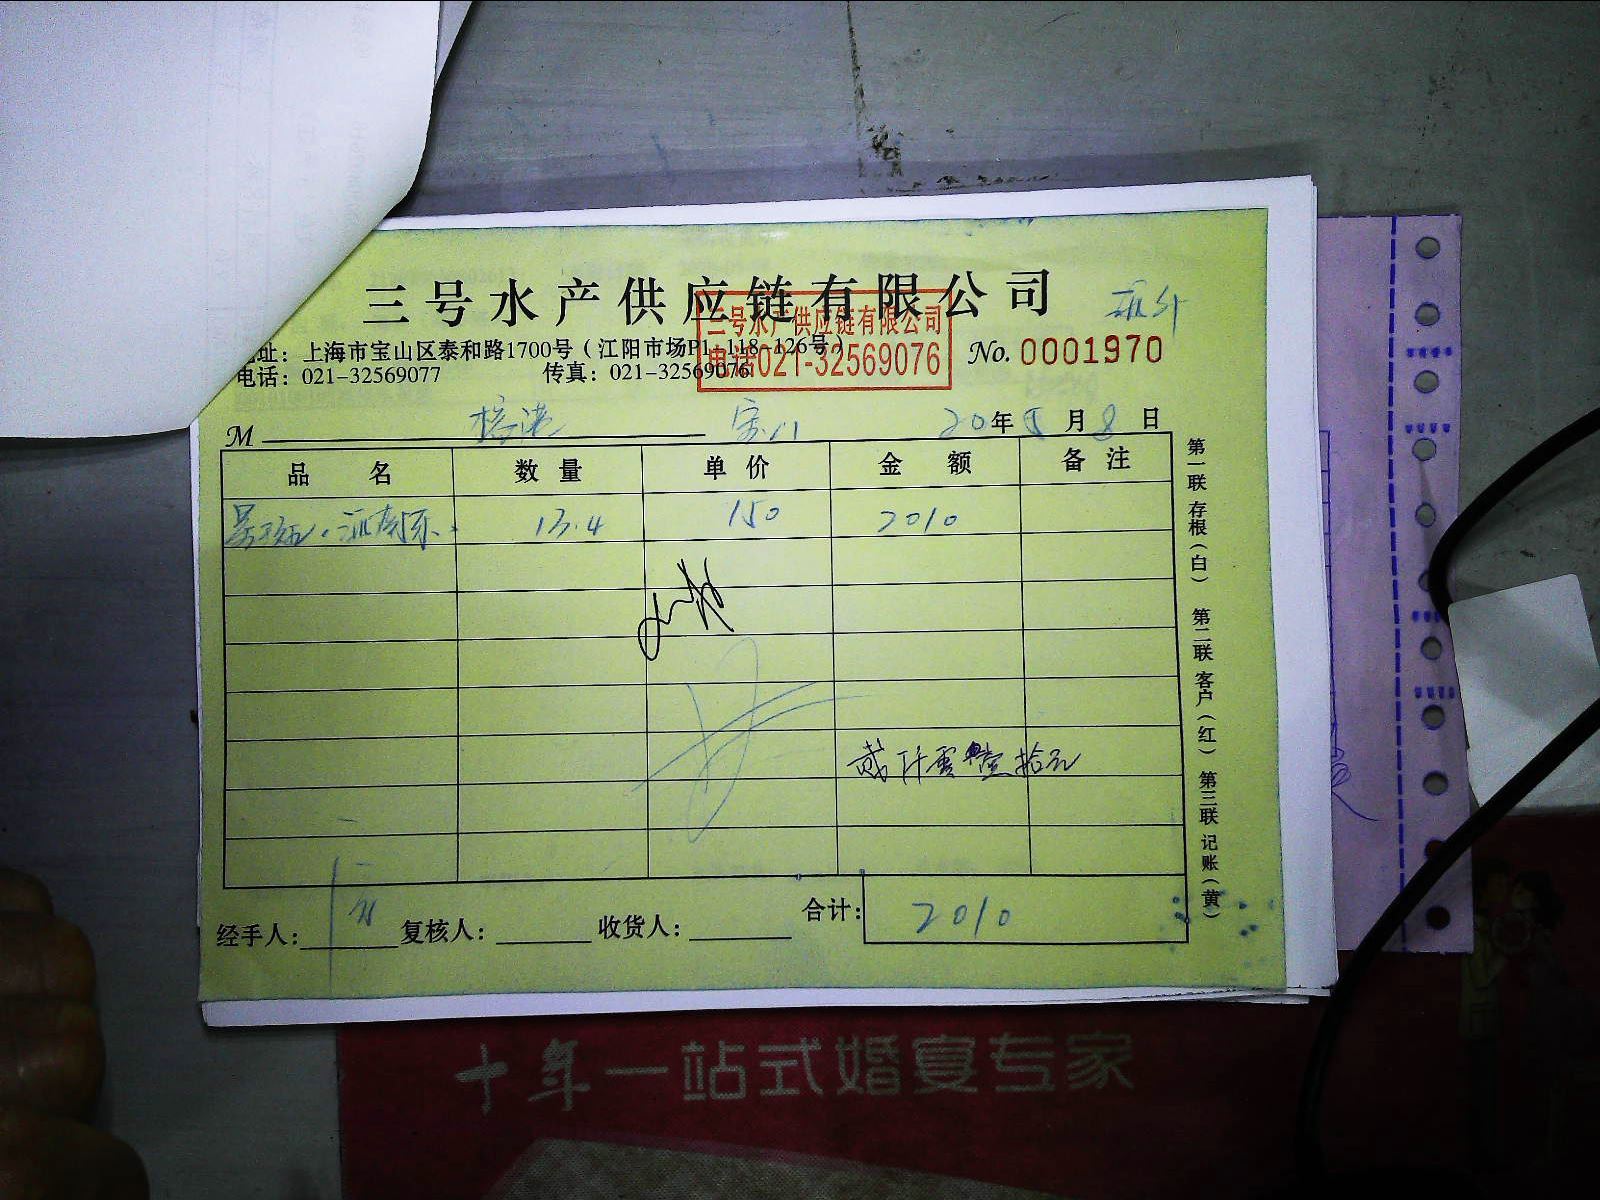 三号水产供应链有限公司
三号水产供应链有限公司
电话021-32569076
地址：上海市宝山区泰和路1700号（江阳市场P1-118-126号）
No. 0001970
电话：021-32569077 传真：021-32569076
M 宝山 20年 8月8日
品名 数量 单价 金额 备注
13.4 150 2010
贰仟零壹拾元
经手人： 复核人： 收货人： 合计： 2010
第一联 存根（白） 第二联 客户（红） 第三联 记账（黄）
十年一站式婚宴专家